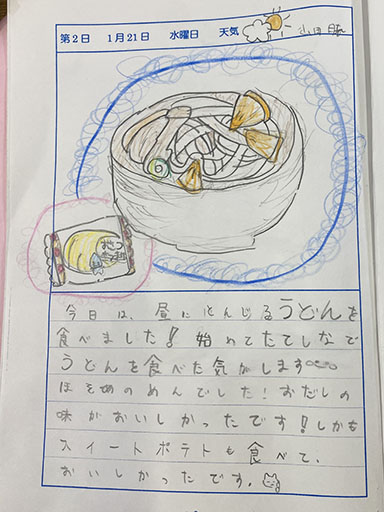 第2日 1月21日 水曜日 天気
今日は、昼にとんじるうどんを
食べました! 始めてたてしなで
うどんを食べた気がします
ほそめのめんでした! おだしの
味がおいしかったです! しかも
スイートポテトも食べて、
おいしかったです。